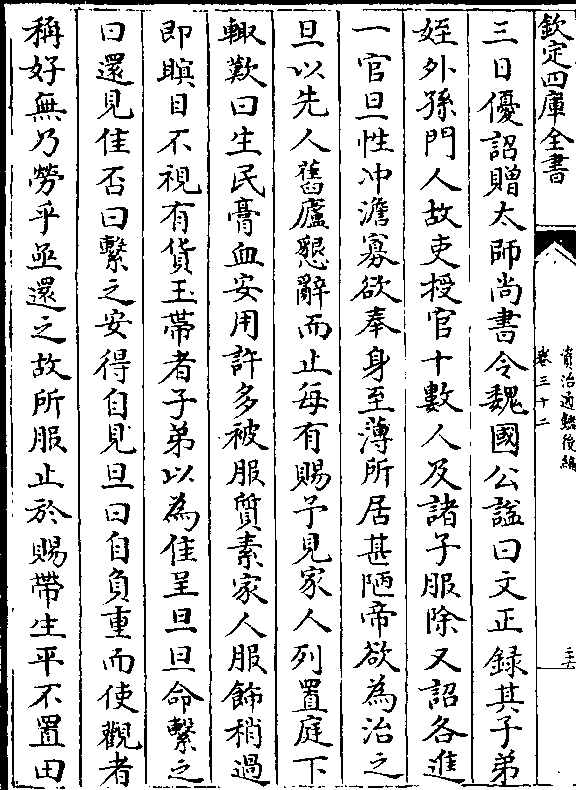 欽定四庫全書
資治通鑑後編
卷三十二
三日優詔贈太師尚書令魏國公諡曰文正録其子弟
姪外孫門人故吏授官十數人及諸子服除又詔各進
一官旦性沖澹寡欲奉身至薄所居甚陋帝欲為治之
旦以先人舊廬懇辭而止每有賜予見家人列置庭下
輙歎曰生民膏血安用許多被服質素家人服飾稍過
即瞑目不視有貨玉帶者子弟以為佳呈旦旦命繫之
曰還見佳否曰繫之安得自見旦曰自負重而使觀者
稱好無乃勞乎亟還之故所服止於賜帶生平不置田